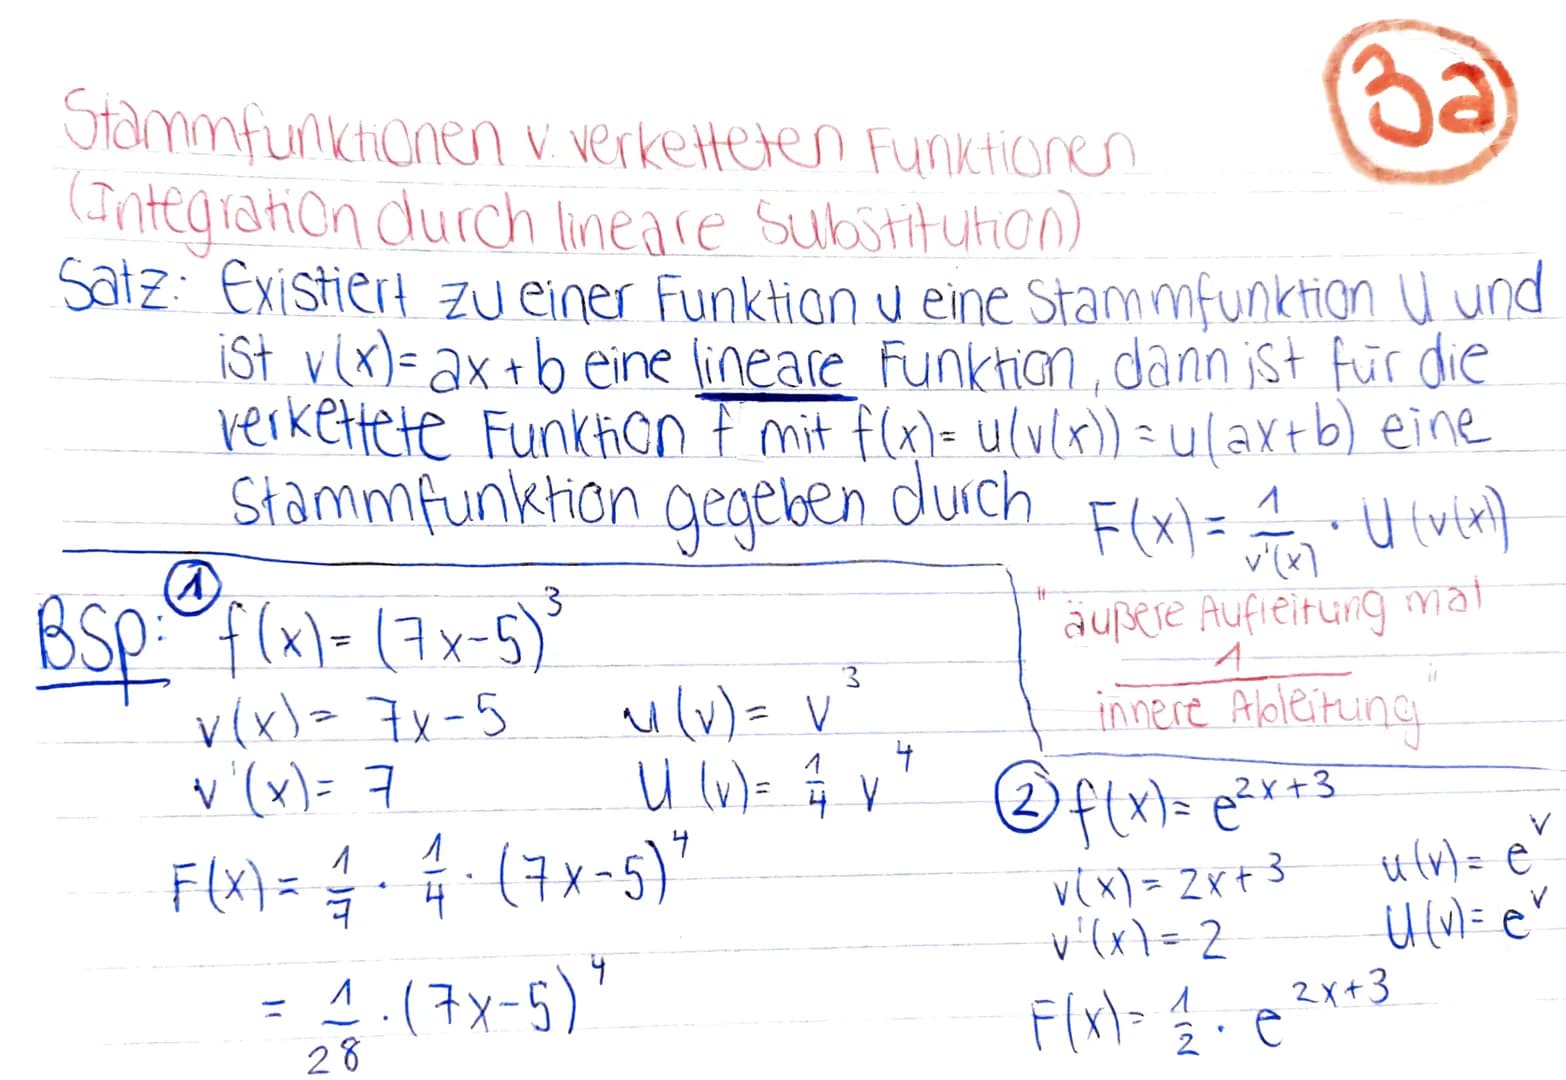 3a
Stammfunktionen v. verketteten Funktionen
(Integration durch lineare Substitution)
Satz: Existiert zu einer Funktion u eine Stammfunktion U und
ist v(x)= ax+b eine lineare Funktion, dann ist für die
verkettete Funktion f mit f(x)= u(v(x)) = u(ax+b) eine
Stammfunktion gegeben durch F(x)= 1/v'(x) · U(v(x))
"äußere Aufleitung mal
1/innere Ableitung"
BSp: ① f(x)= (7x-5)³
v(x)= 7x-5 u(v)= v³
v'(x)= 7 U(v)= 1/4 v⁴
F(x)= 1/7 · 1/4 · (7x-5)⁴
= 1/28 · (7x-5)⁴
② f(x)= e^(2x+3)
v(x)= 2x+3 u(v)= e^v
v'(x)= 2 U(v)= e^v
F(x)= 1/2 · e^(2x+3)